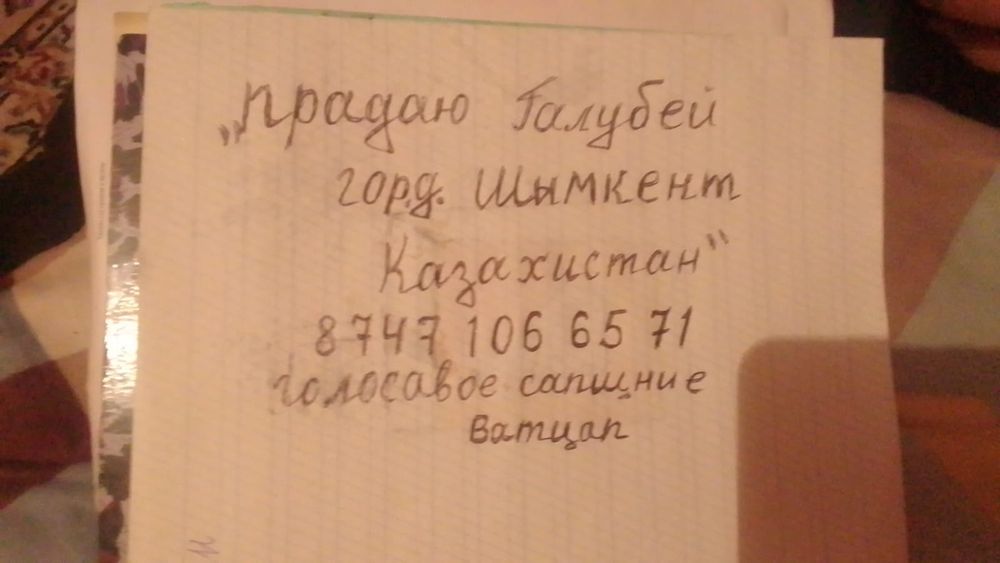 „прадаю Галубей
горд. Шымкент
Казахистан"
8747 106 65 71
голосавое сапщние
Ватцап